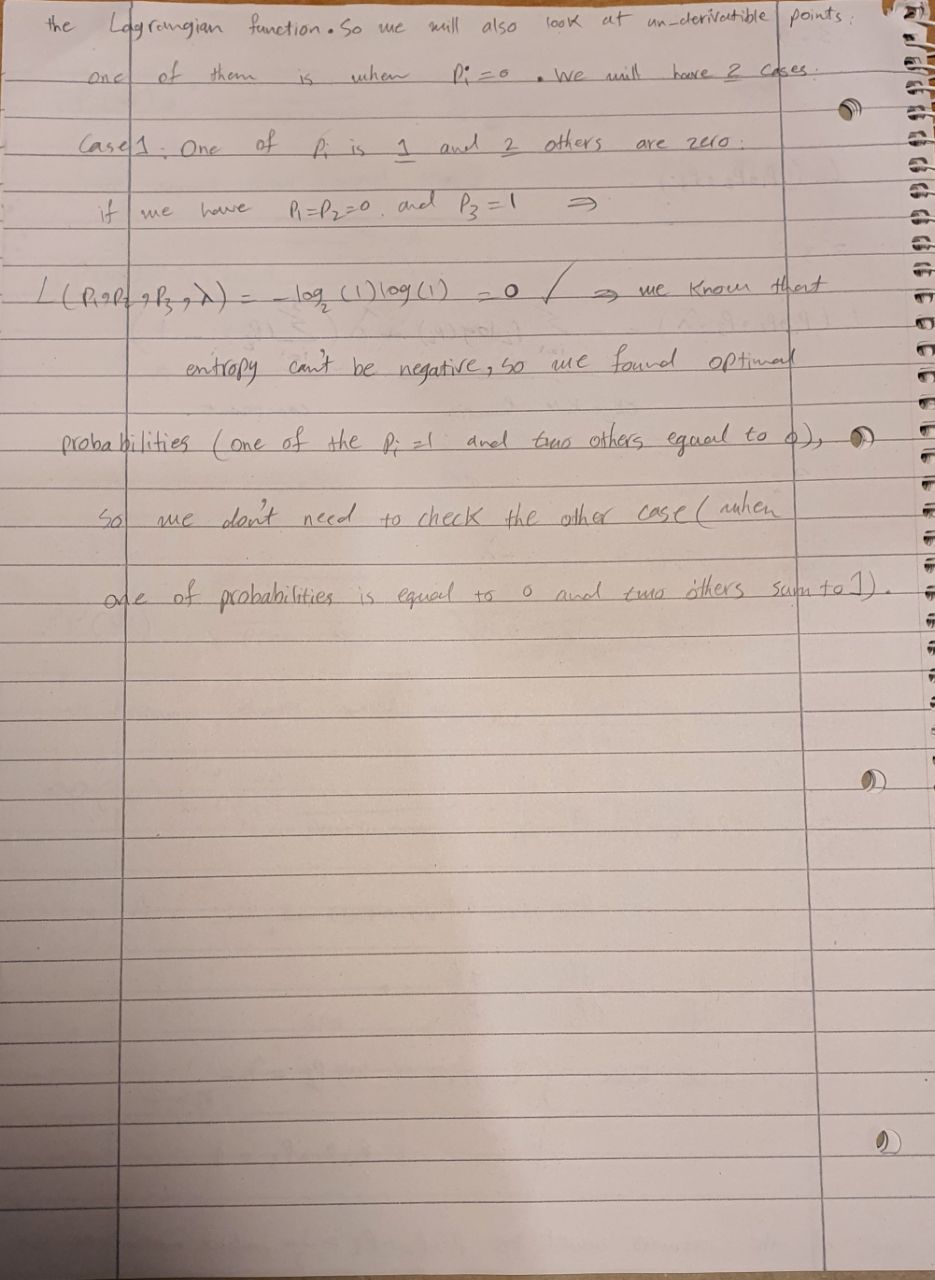 the Lagrangian function. So we will also look at un-derivatible points:
one of them is when Pi = 0. We will have 2 cases:
Case 1: One of Pi is 1 and 2 others are zero:
if we have P1=P2=0, and P3=1 ⇒
L(P1,P2,P3,λ) = -log2(1)log(1) = 0 ✓ ⇒ we know that
entropy can't be negative, so we found optimal
probabilities (one of the Pi=1 and two others equal to 0),
So we don't need to check the other case (when
one of probabilities is equal to 0 and two others sum to 1).